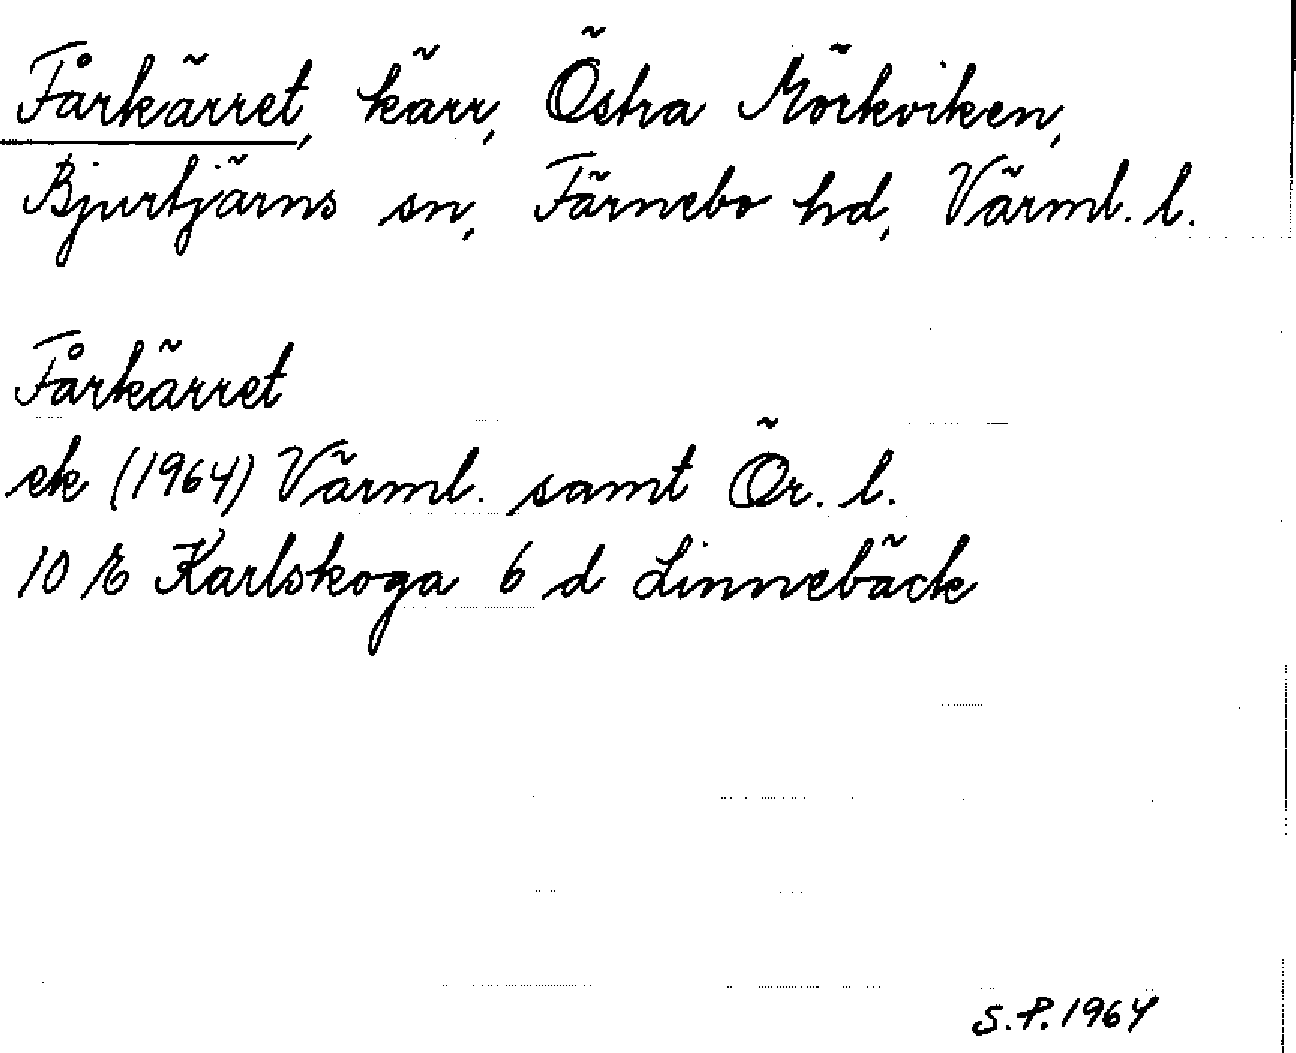 Fårkärret, kärr, Östra Mörkviken,
Bjurtjärns sn, Färnebo hd, Värml. l.
Fårkärret
ek (1964) Värml. samt Ör. l.
10 E Karlskoga 6 d Linnebäck
S.P. 1964